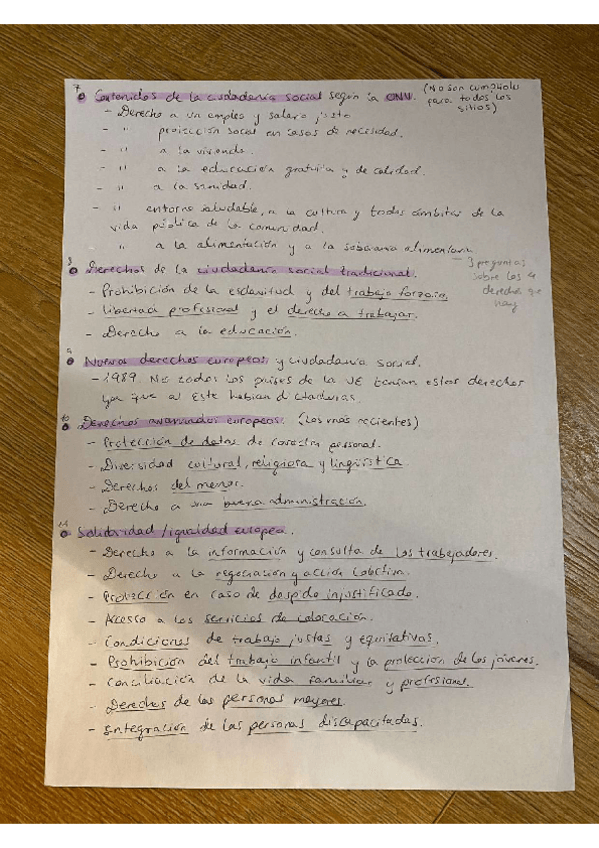 7
Contenidos de la ciudadanía social según la ONU. (No son cumplidos
para todos los
sitios)
- Derecho a un empleo y salario justo
- " protección social en casos de necesidad.
- " a la vivienda.
- " a la educación gratuita y de calidad.
- " a la sanidad.
- " entorno saludable, a la cultura y todos ámbitos de la
vida pública de la comunidad.
" a la alimentación y a la soberanía alimentaria
8 Derechos de la ciudadanía social tradicional.
- 3 preguntas
sobre los 4
derechos que
hay
- Prohibición de la esclavitud y del trabajo forzoso.
- libertad profesional y el derecho a trabajar.
- Derecho a la educación.
9
Nuevos derechos europeos y ciudadanía social.
- 1989. No todos los países de la UE tenían estos derechos
ya que al Este habían dictaduras.
10
Derechos avanzados europeos. (Los más recientes)
- Protección de datos de carácter personal.
- Diversidad cultural, religiosa y lingüística
- Derechos del menor.
- Derecho a una buena administración.
11
Solidaridad / igualdad europea.
- Derecho a la información y consulta de los trabajadores.
- Derecho a la negociación y acción colectiva.
- Protección en caso de despido injustificado.
- Acceso a los servicios de colocación.
- Condiciones de trabajo justas y equitativas.
- Prohibición del trabajo infantil y la protección de los jóvenes.
- Conciliación de la vida familiar y profesional.
- Derechos de las personas mayores.
- Integración de las personas discapacitadas.